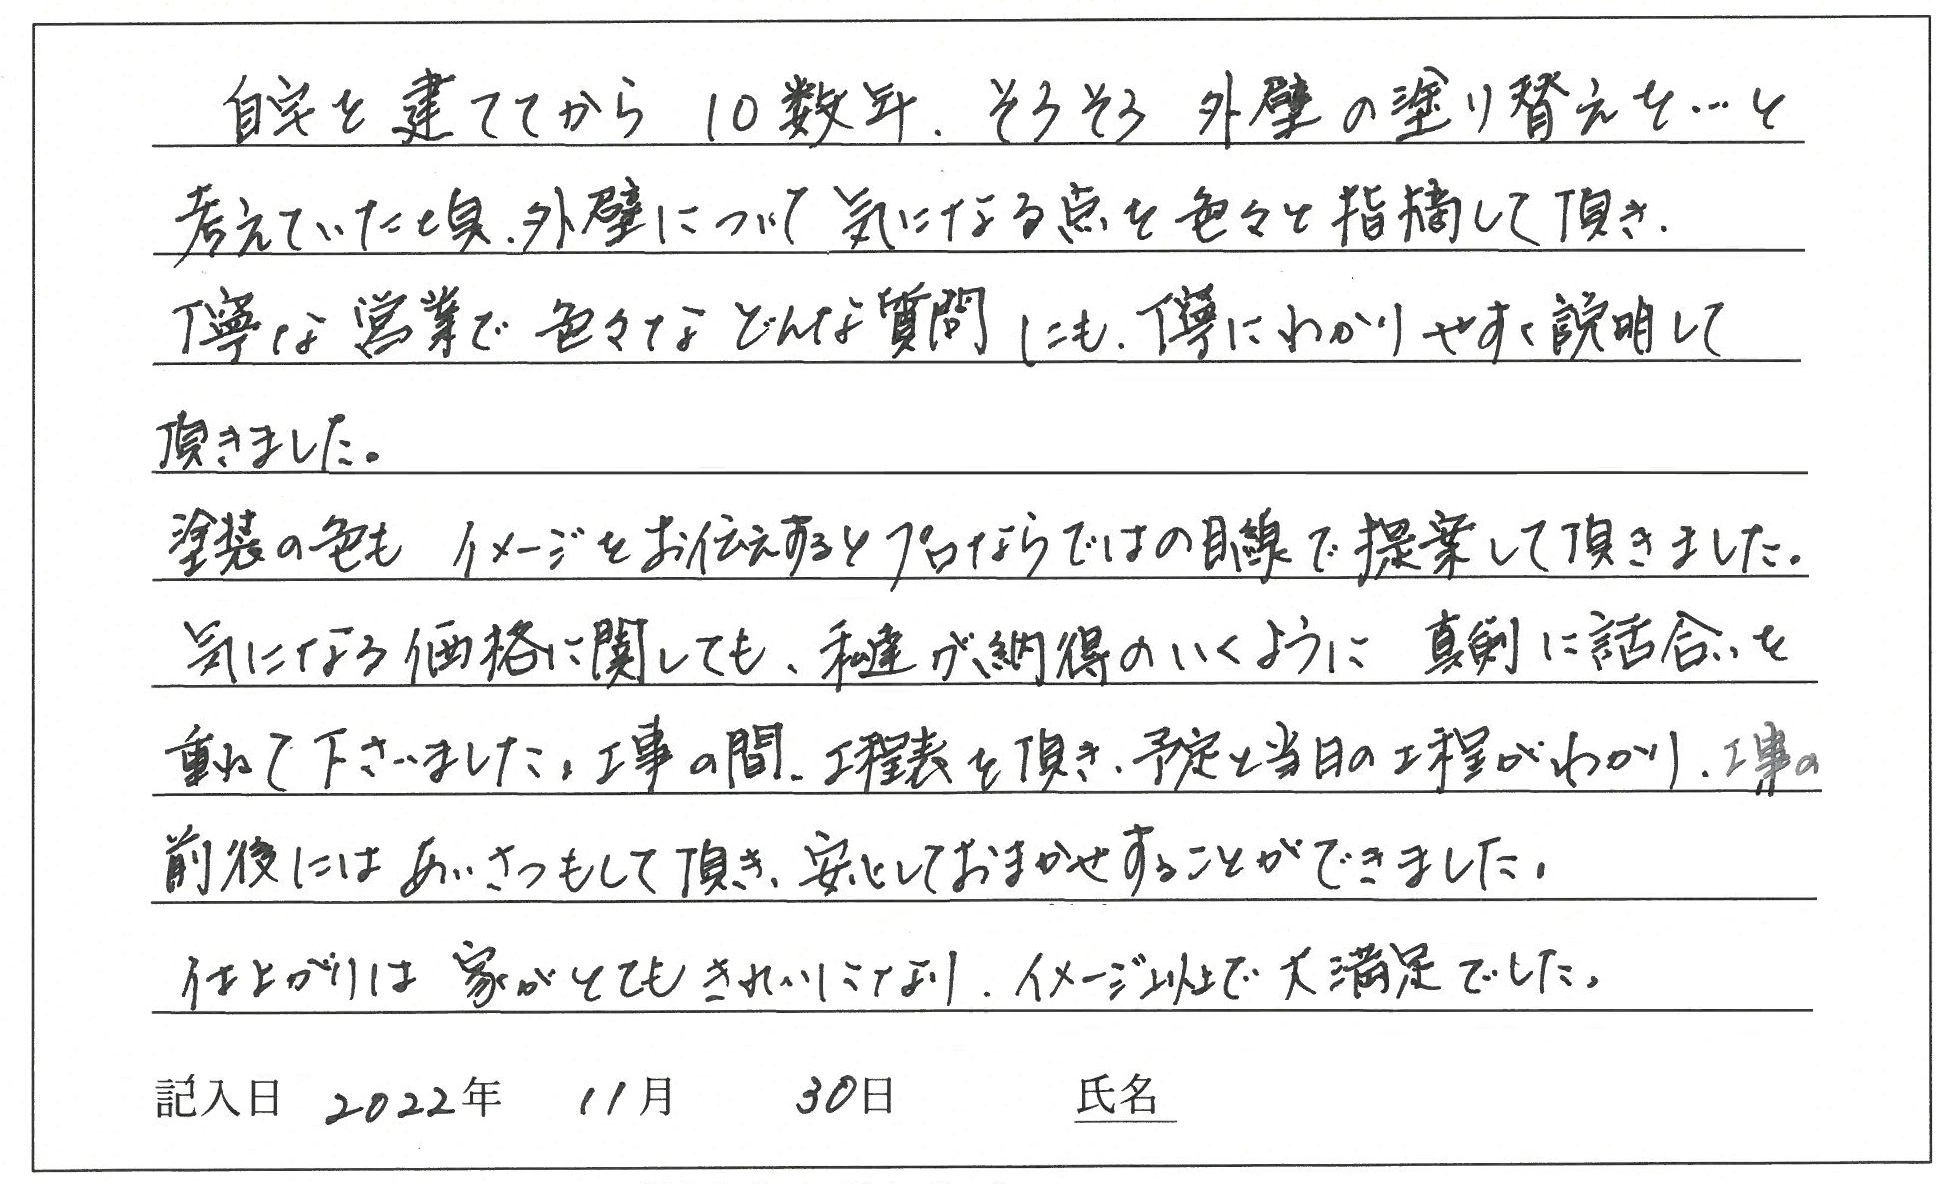 自宅を建ててから 10数年、そろそろ 外壁の塗り替えを…と
考えていた頃、外壁について 気になる点を色々と指摘して頂き、
丁寧な営業で 色々な どんな質問にも、丁寧にわかりやすく説明して
頂きました。
塗装の色も イメージをお伝えするとプロならではの目線で提案して頂きました。
気になる価格に関しても、私達が納得のいくように 真剣に話合いを
重ねて下さいました。工事の間、工程表を頂き、予定と当日の工程がわかり、工事の
前後には あいさつもして頂き、安心しておまかせすることができました。
仕上がりは 家がとてもきれいになり、イメージ以上で大満足でした。
記入日 2022年 11月 30日 氏名